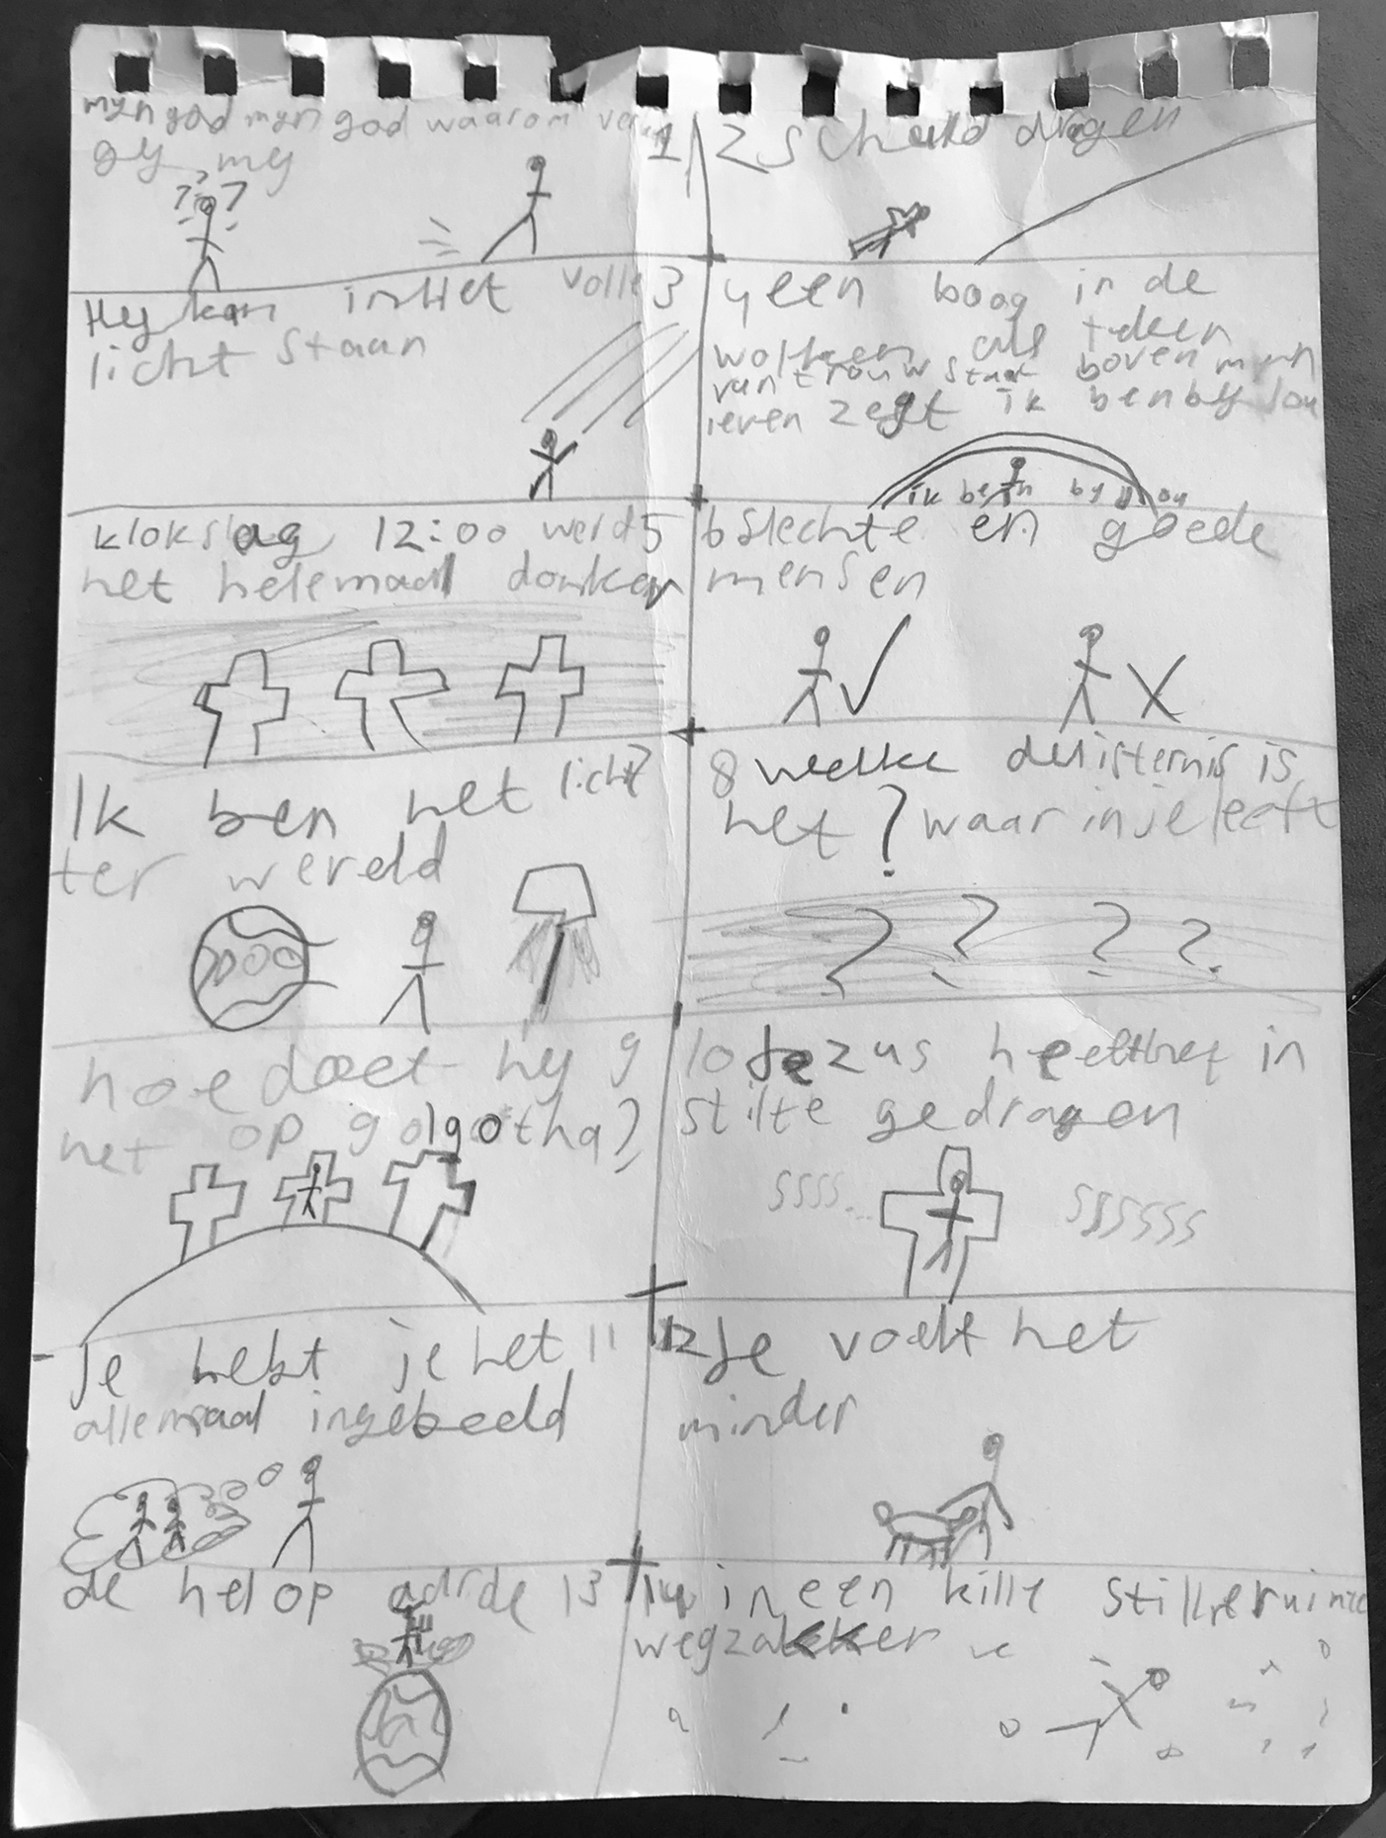 myn god myn god waarom 1
gy my
? ? ?
2 schuld dragen
Hey kan in Het volle 3
licht staan
4 een boog in de
wolken als teken
van trouw staat boven myn
leven zegt ik ben by jou
ik ben by jou
klokslag 12:00 werd 5
het helemaal donker
6 slechte en goede
mensen
Ik ben het licht 7
ter wereld
8 welke duisternis is
het ? waar in je leeft
? ? ? ?
hoe doet hy 9
het op golgotha?
10 Jezus heeft het in
stilte gedragen
ssss...
ssssss
Je hebt je het 11
allemaal ingebeeld
12 Je voelt het
minder
de hel op aarde 13
14 in een kille stille ruimte
wegzakken